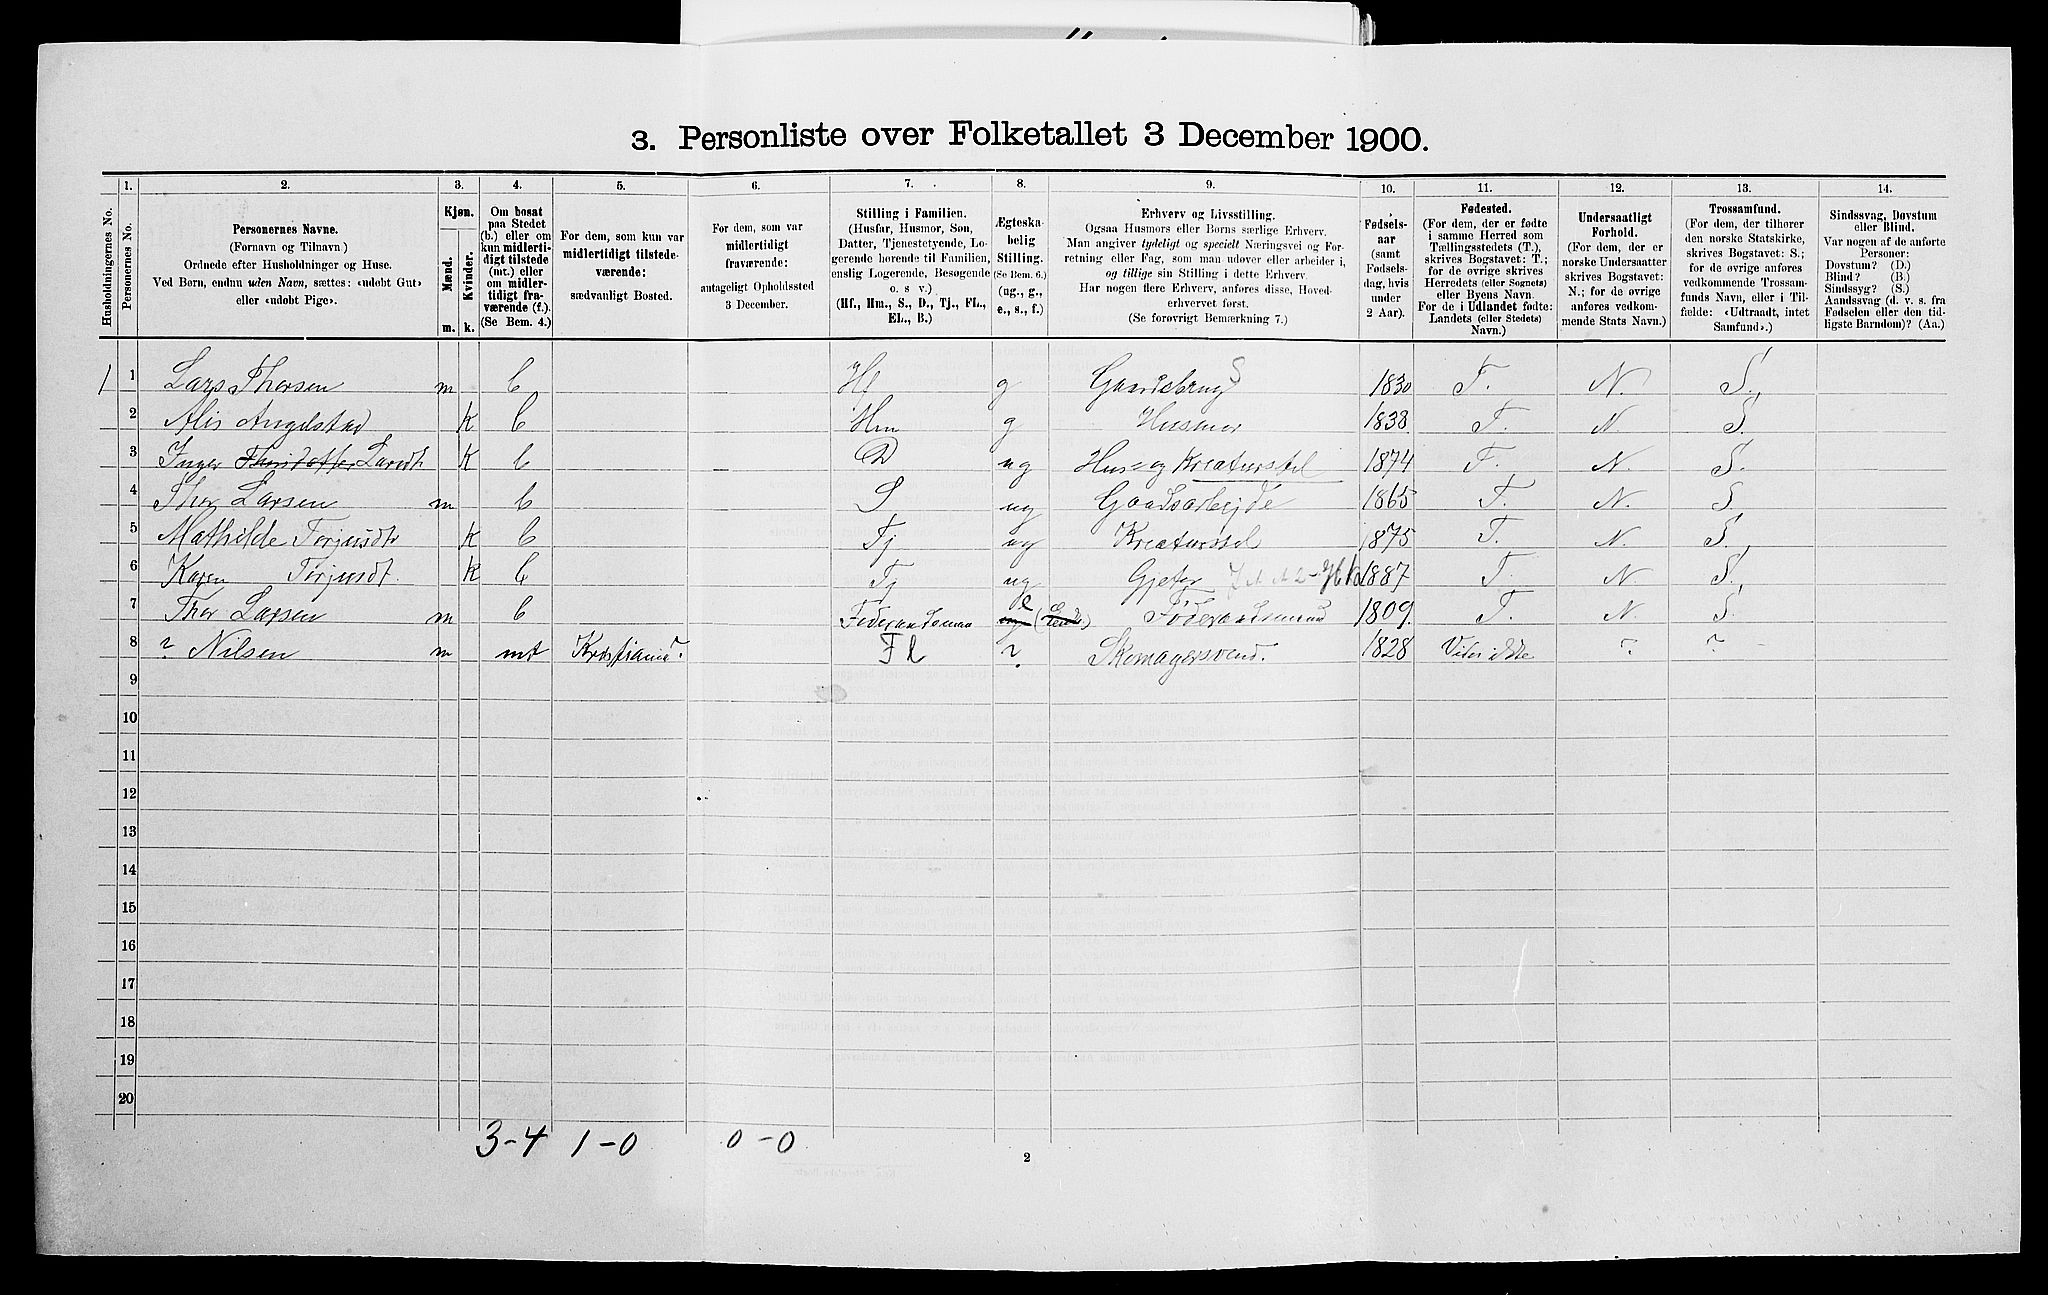 3. Personliste over Folketallet 3 December 1900.
Husholdningernes No.
1. Personernes No.
2. Personernes Navne.
(Fornavn og Tilnavn.)
Ordnede efter Husholdninger og Huse.
Ved Børn, endnu uden Navn, sættes: «udøbt Gut»
eller «udøbt Pige».
3. Kjøn.
Mænd. Kvinder.
m. k.
4. Om bosat
paa Stedet
(b.) eller om
kun midlerti-
digt tilstede
(mt.) eller
om midler-
tidigt fra-
værende (f.).
(Se Bem. 4.)
5. For dem, som kun var
midlertidigt tilstede-
værende:
sædvanligt Bosted.
6. For dem, som var
midlertidigt
fraværende:
antageligt Opholdssted
3 December.
7. Stilling i Familien.
(Husfar, Husmor, Søn,
Datter, Tjenestetyende, Lo-
gerende hørende til Familien,
enslig Logerende, Besøgende
o. s v.)
(Hf., Hm., S., D., Tj., FL.,
EL., B.)
8. Ægteska-
belig
Stilling.
(Se Bem. 6.)
(ug., g.,
e., s., f.)
9. Erhverv og Livsstilling.
Ogsaa Husmors eller Børns særlige Erhverv.
Man angiver tydeligt og specielt Næringsvei og For-
retning eller Fag, som man udøver eller arbeider i,
og tillige sin Stilling i dette Erhverv.
Har nogen flere Erhverv, anføres disse, Hoved-
erhvervet først.
(Se forøvrigt Bemærkning 7.)
10. Fødsels-
aar
(samt
Fødsels-
dag, hvis
under
2 Aar).
11. Fødested.
(For dem, der er fødte
i samme Herred som
Tællingsstedets (T.),
skrives Bogstavet: T.;
for de øvrige skrives
Herredets (eller Sognets)
eller Byens Navn.
For de i Udlandet fødte:
Landets (eller Stedets)
Navn.)
12. Undersaatligt
Forhold.
(For dem, der er
norske Undersaatter
skrives Bogstavet:
N.; for de øvrige
anføres vedkom-
mende Stats Navn.)
13. Trossamfund.
(For dem, der tilhører
den norske Statskirke,
skrives Bogstavet: S.;
for de øvrige anføres
vedkommende Trossam-
funds Navn, eller i Til-
fælde: «Udtraadt, intet
Samfund».)
14. Sindssvag, Døvstum
eller Blind.
Var nogen af de anførte
Personer:
Døvstum? (D.)
Blind? (B.)
Sindssyg? (S.)
Aandssvag (d. v. s. fra
Fødselen eller den tid-
ligste Barndom)? (Aa.)
1 1 Lars Thorsen m b Hf g Gaardbrug S 1830 T. N. S.
2 Alis Angelstad k b Hm g Husmor 1838 T. N S.
3 Inger Larsdt. k b D ug Hus- og Kreaturstel 1874 T. N. S.
4 Thor Larsen m b S ug Gaardsarbejde 1865 T. N. S.
5 Mathilde Torjusdt. k b Tj ug Kreaturstel 1875 T. N. S.
6 Karen Torjusdt. k b Tj ug Gjeter 1887 T. N S.
7 Thor Larsen m b Føderaadsman e Føderaadsmand 1809 T. N. S.
8 ? Nilsen m mt Kristiansd. FL ? Skomagersvend. 1828 Vides ikke ? ?
9
10
11
12
13
14
15
16
17
18
19
20
3-4 1-0 0-0
2